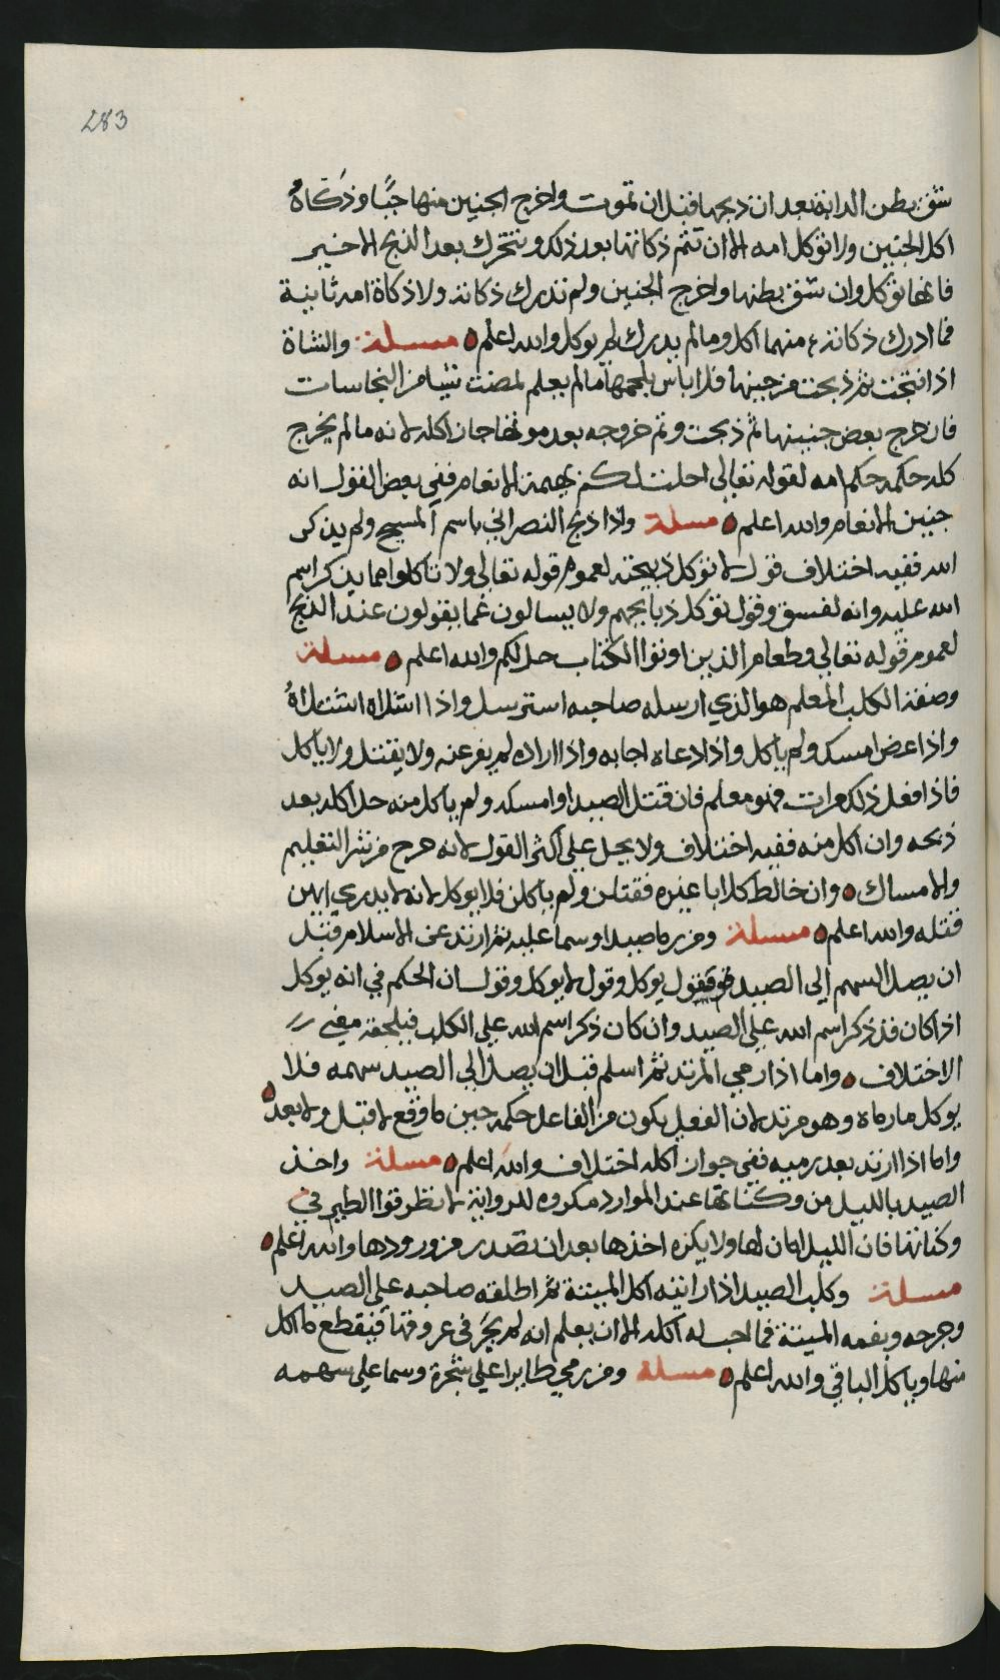 283
شق بطن الدابة بعد ان ذبحها قبل ان تموت واخرج الجنين منها حيًا وذكاهُ
اكل الجنين ولا توكل امه الا ان تتم ذكاتها بعد ذلك وتتحرك بعد الذبح الاخير
فانها توكل وان شق بطنها واخرج الجنين ولم تدرك ذكاته ولا ذكاة امه ثانية
فما ادرك ذكاته منهما اكل وما لم يدرك لم يوكل والله اعلم مسلة والشاة
اذا نتجت ثم ذبحت من حينها فلا باس بلحمها ما لم يعلم لمصت شيا من النجاسات
فان خرج بعض جنينها ثم ذبحت وتم خروجه بعد موتها جاز اكله لانه ما لم يخرج
كله حكمه حكم امه لقوله تعالى احلت لكم بهيمة الانعام ففي بعض القول انه
جنين الانعام والله اعلم مسلة واذا ذبح النصراني باسم المسيح ولم يذكر
الله ففيه اختلاف قول لا توكل ذبيحته لعموم قوله تعالى ولا تاكلوا مما يذكر اسم
الله عليه وانه لفسق وقول توكل ذبايحهم ولا يسالون عما يقولون عند الذبح
لعموم قوله تعالى وطعام الذين اوتوا الكتاب حل لكم والله اعلم مسلة
وصفة الكلب المعلم هو الذي ارسله صاحبه استرسل واذا اشلاه اشتلاهُ
واذا عض امسك ولم ياكل واذا دعاه اجابه واذا اراده لم يفر عنه ولا يقتل ولا ياكل
فاذا فعل ذلك مرات فهو معلم فان قتل الصيد او امسكه ولم ياكل منه حل اكله بعد
ذبحه وان اكل منه ففيه اختلاف ولا يحل على اكثر القول لانه خرج من شر التعليم
والامساك وان خالط كلابا غيره فقتلن ولم ياكلن فلا يوكل لانه لا يدري ايهن
قتله والله اعلم مسلة ومن رما صيدا وسما عليه ثم ارتد عن الاسلام قبل
ان يصل السهم الى الصيد فقول يوكل وقول لا يوكل وقول ان الحكم في انه يوكل
اذا كان قد ذكر اسم الله على الصيد وان كان ذكر اسم الله على الكلب فيلحقه معنى
الاختلاف واما اذا رمي المرتد ثم اسلم قبل ان يصل الى الصيد سهمه فلا
يوكل ما رماه وهو مرتد لان الفعل يكون من الفاعل حكمه حين ما وقع لا قبل ولا بعد
واما اذا ارتد بعد رميه ففي جواز اكله اختلاف والله اعلم مسلة واخذ
الصيد بالليل من وكناتها عند الموارد مكروه للرواية لا تطرقوا الطير في
وكناتها فان الليل امان لها ولا يكره اخذها بعد ان تصدر من ورودها والله اعلم
مسلة وكلب الصيد اذا رايته اكل الميتة ثم اطلقه صاحبه على الصيد
وجرحه وبفمه الميتة فما احب له اكله الا ان يعلم انه لم يجر في عروقها فيقطع ما اكل
منها وياكل الباقي والله اعلم مسلة ومن رمي طايرا على شجرة وسما على سهمه